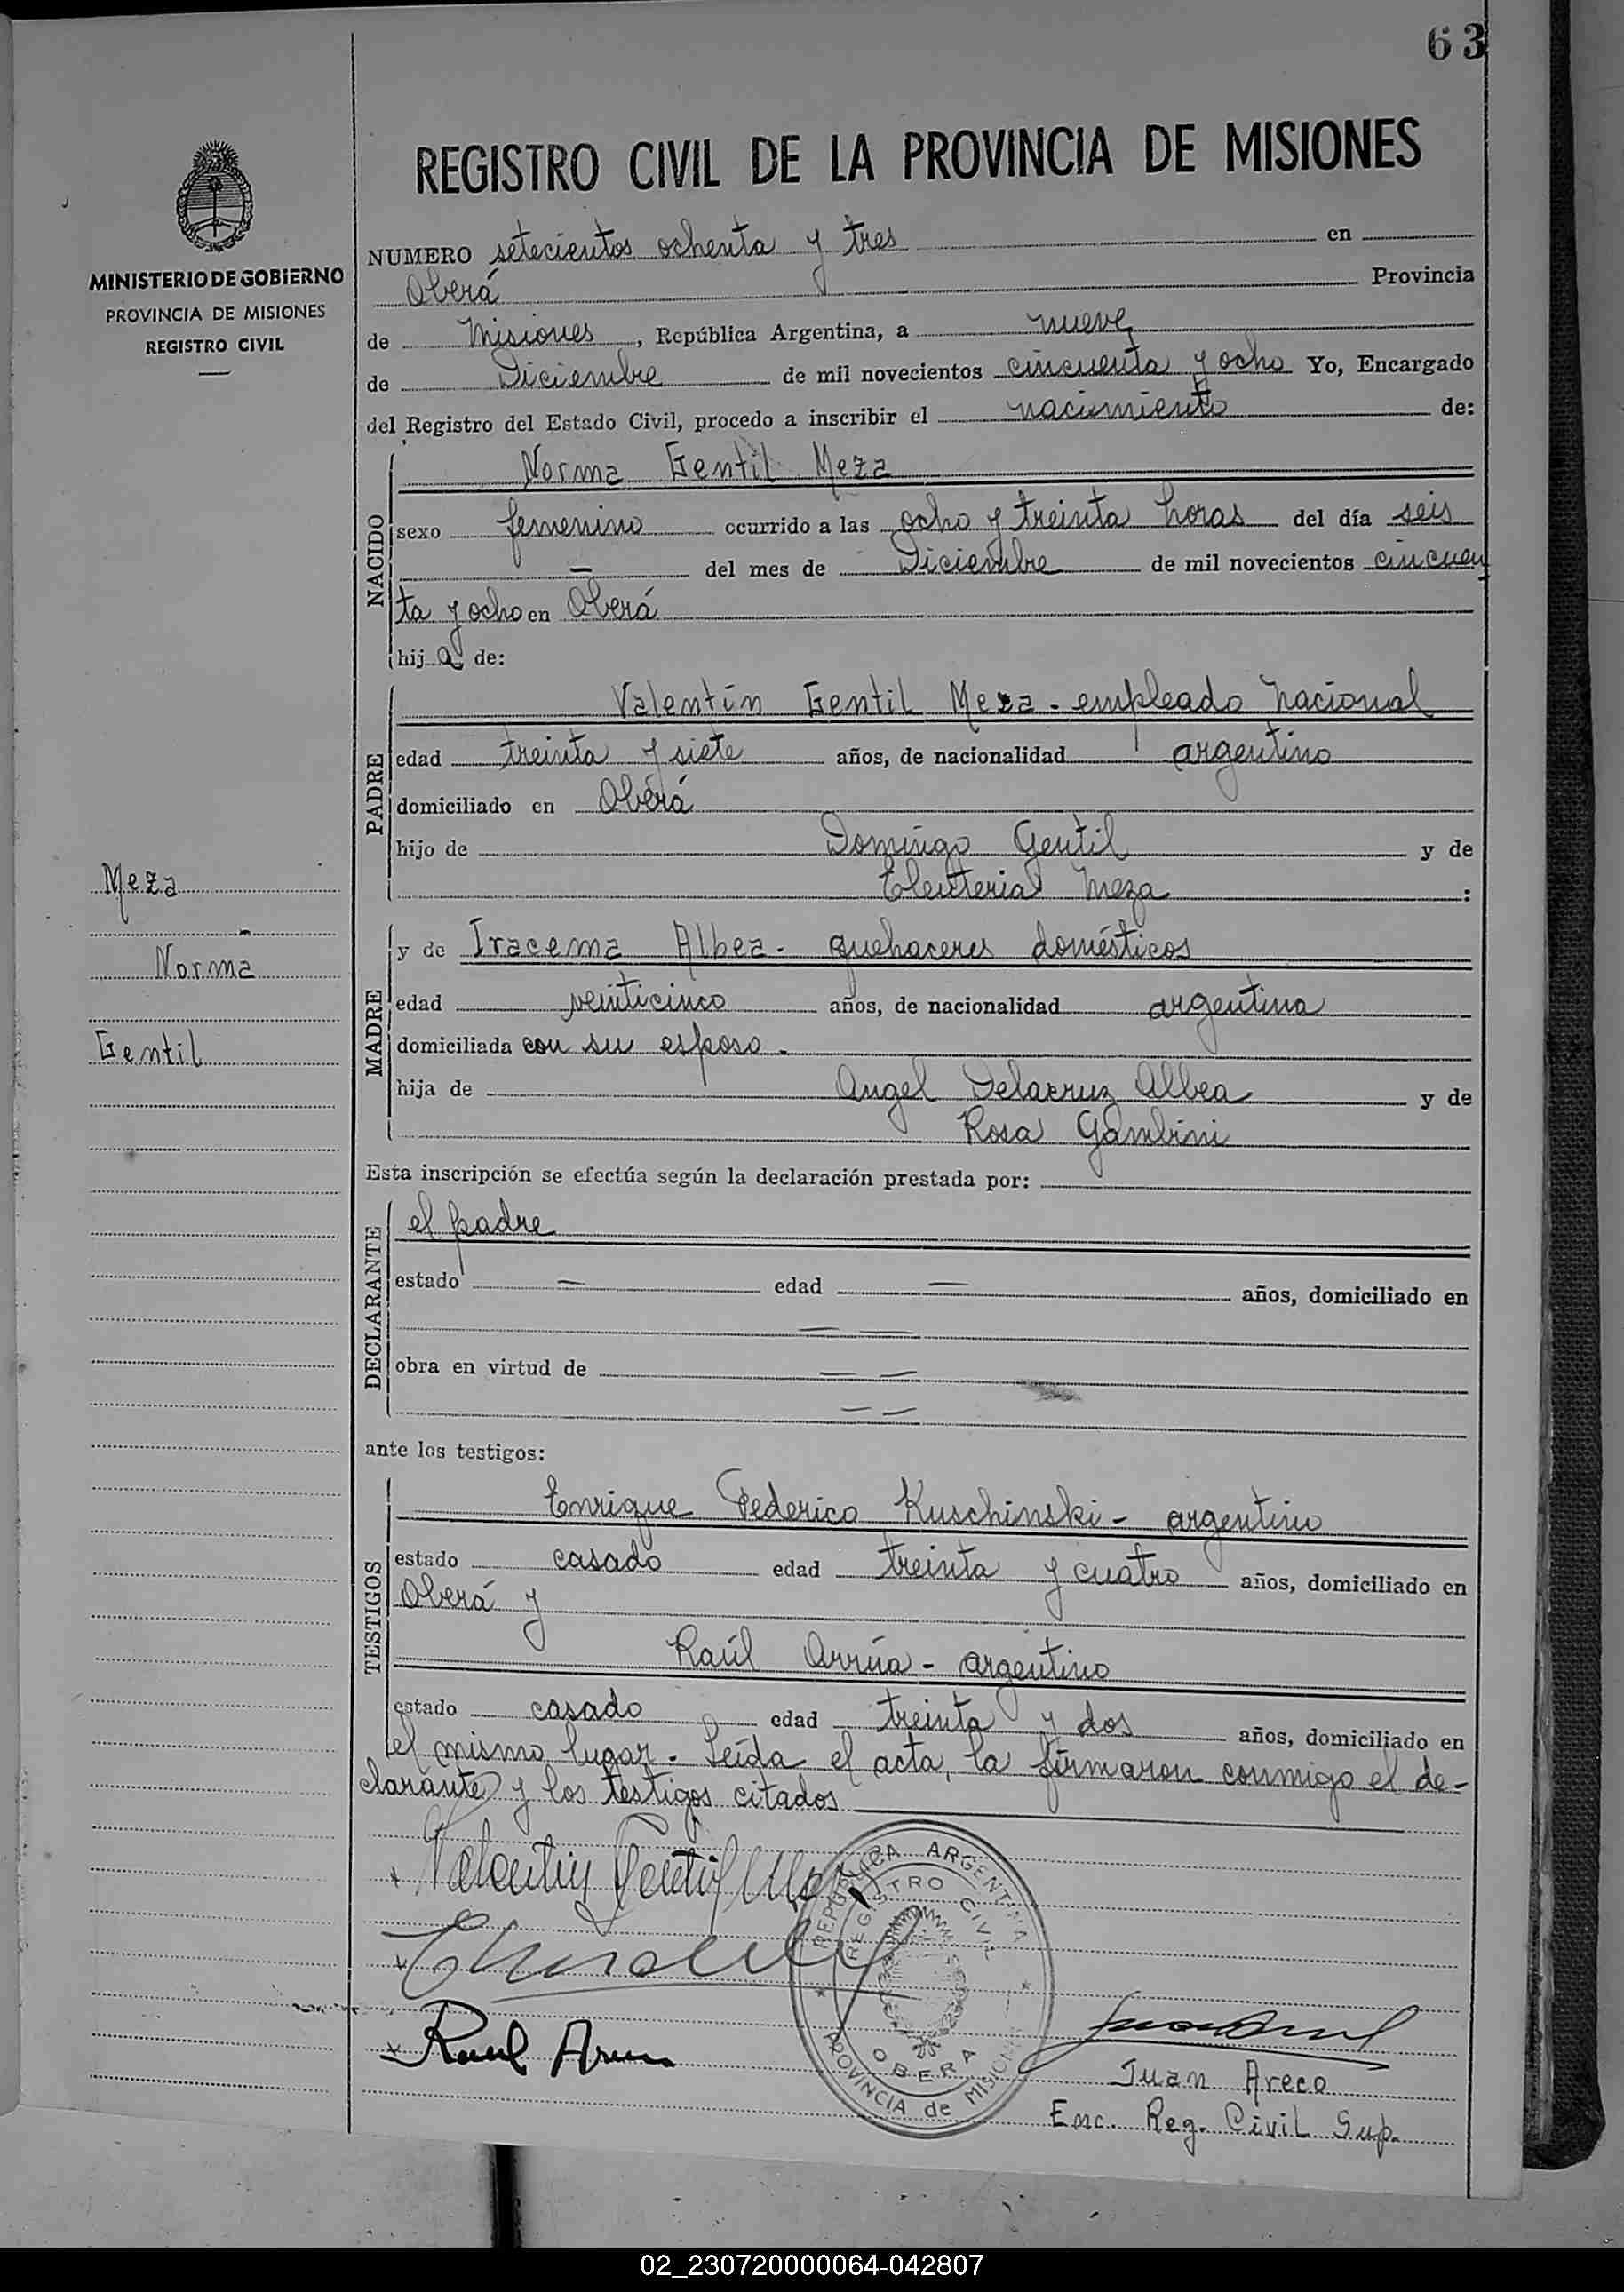 63
REGISTRO CIVIL DE LA PROVINCIA DE MISIONES
MINISTERIO DE GOBIERNO
PROVINCIA DE MISIONES
REGISTRO CIVIL
NUMERO setecientos ochenta y tres en
Oberá Provincia
de Misiones, República Argentina, a nueve
de Diciembre de mil novecientos cincuenta y ocho Yo, Encargado
del Registro del Estado Civil, procedo a inscribir el nacimiento de:
NACIDO
Norma Gentil Meza
sexo femenino ocurrido a las ocho y treinta horas del día seis
— del mes de Diciembre de mil novecientos cincuen
ta y ocho en Oberá
hija de:
PADRE
Valentín Gentil Meza - empleado nacional
edad treinta y siete años, de nacionalidad argentino
domiciliado en Oberá
hijo de Domingo Gentil y de
Eleuteria Meza :
Meza
Norma
Gentil
MADRE
y de Iracema Albea - quehaceres domésticos
edad veinticinco años, de nacionalidad argentina
domiciliada con su esposo -
hija de Angel Delacruz Albea y de
Rosa Gambini
Esta inscripción se efectúa según la declaración prestada por:
DECLARANTE
el padre
estado — edad — años, domiciliado en
— —
obra en virtud de — —
— —
ante los testigos:
TESTIGOS
Enrique Federico Kuschinski - argentino
estado casado edad treinta y cuatro años, domiciliado en
Oberá y
Raúl Arrúa - argentino
estado casado edad treinta y dos años, domiciliado en
el mismo lugar. Leída el acta, la firmaron conmigo el de-
clarante y los testigos citados
Valentin Gentil Meza
Raul Arrua
REPUBLICA ARGENTINA
REGISTRO CIVIL
OBERA
PROVINCIA de MISIONES
Juan Areco
Enc. Reg. Civil Sup.
02_230720000064-042807